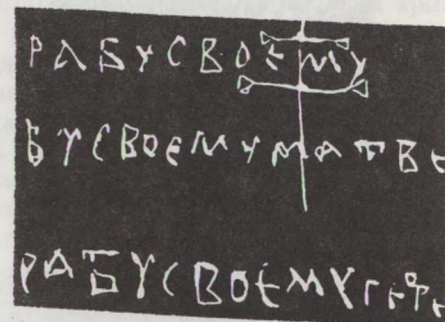 РАБУСВОЕМУ
БУСВОЕМУМАТВЕ
РАБУСВОЕМУГЕ